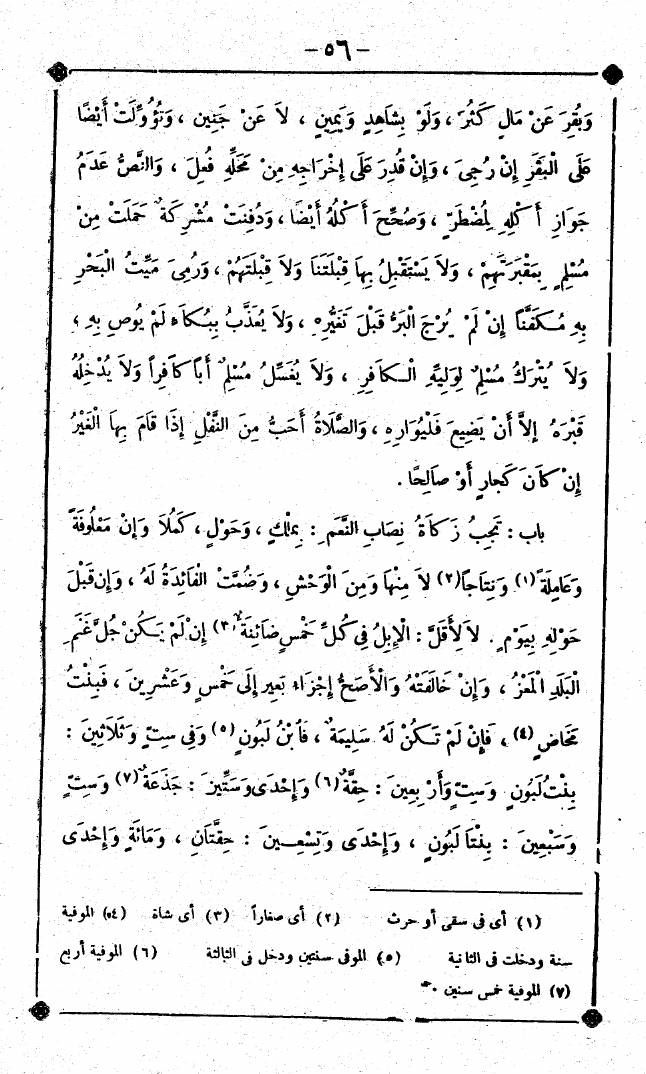 — ٥٦ —
وَبُقِرَ عَنْ مَالٍ كَثُرَ ، وَلَوْ بِشَاهِدٍ وَيَمِينٍ ، لاَ عَنْ جَنِين ، وَتُؤُوِّلَتْ أَيْضًا
عَلَى الْبَقْرِ إِنْ رُجِىَ ، وَإِنْ قُدِرَ عَلَى إِخْرَاجِهِ مِنْ مَحَلِّهِ فُعِلَ ، وَالنَّصُّ عَدَمُ
جَوَازِ أَكْلِهِ لِمُضْطَرٍّ ، وَصُحِّحَ أَكْلُهُ أَيْضًا ، وَدُفِنَتْ مُشْرِكَةٌ حَمَلَتْ مِنْ
مُسْلِمٍ بِمَقْبَرَتِهِمْ ، وَلاَ يُسْتَقْبَلُ بِهَا قِبْلَتَنَا وَلاَ قِبْلَتَهُمْ ، وَرُمِىَ مَيِّتُ الْبَحْرِ
بِهِ مُكَفَّنًا إِنْ لَمْ يُرْجَ الْبَرُّ قَبْلَ تَغَيُّرِهِ ، وَلاَ يُعَذَّبُ بِبُكَاءٍ لَمْ يُوصِ بِهِ ؛
وَلاَ يُتْرَكُ مُسْلِمٌ لِوَلِيِّهِ الْكَافِرِ ، وَلاَ يُغَسِّلُ مُسْلِمٌ أَبًا كَافِراً وَلاَ يُدْخِلُهُ
قَبْرَهُ إِلاَّ أَنْ يَضِيعَ فَلْيُوَارِهِ ، وَالصَّلاَةُ أَحَبُّ مِنَ النَّفْلِ إِذَا قَامَ بِهَا الْغَيْرُ
إِنْ كَانَ كَجَارٍ أَوْ صَالِحًا .
باب : تَجِبُ زَكَاةُ نِصَابِ النَّعَمِ : بِمِلْكٍ ، وَحَوْلٍ ، كَمُلاَ وَإِنْ مَعْلُوفَةً
وَعَامِلَةً (١) وَنِتَاجًا (٢) لاَ مِنْهَا وَمِنَ الْوَحْشِ ، وَضُمَّتْ الْفَائِدَةُ لَهُ ، وَإِن قَبْلَ
حَوْلِهِ بِيَوْمٍ . لاَ لِأَقَلَّ : الْإِبِلُ فِى كُلِّ خَمْسٍ ضَائِنَةٌ (٣) إِنْ لَمْ يَكُنْ جُلُّ غَنَمِ
الْبَلَدِ الْمَعْزُ ، وَإِنْ خَالَفَتْهُ وَالْأَصَحُّ إِجْزَاءُ بَعِيرٍ إِلَى خَمْسٍ وَعَشْرِينَ ، فَبِنْتُ
مَخَاضٍ (٤) ، فَإِنْ لَمْ تَكُنْ لَهُ سَلِيمَةٌ ، فَابْنُ لَبُونٍ (٥) وَفِى سِتٍّ وَثَلاَثِينَ :
بِنْتُ لَبُونٍ وَسِتٍّ وَأَرْبِعِينَ : حِقَّةٌ (٦) وَإِحْدَى وَسِتِّينَ : جَذَعَةٌ (٧) وَسِتٍّ
وَسَبْعِينَ : بِنْتَا لَبُونٍ ، وَإِحْدَى وَتِسْعِينَ : حِقَّتَانِ ، وَمِائَةٍ وَإِحْدَى
(١) أى فى سقى أو حرث (٢) أى صغاراً (٣) أى شاة (٤) الموفية
سنة ودخلت فى الثانية (٥) الموفى سنتين ودخل فى الثالثة (٦) الموفية أربع
(٧) الموفية خمس سنين .